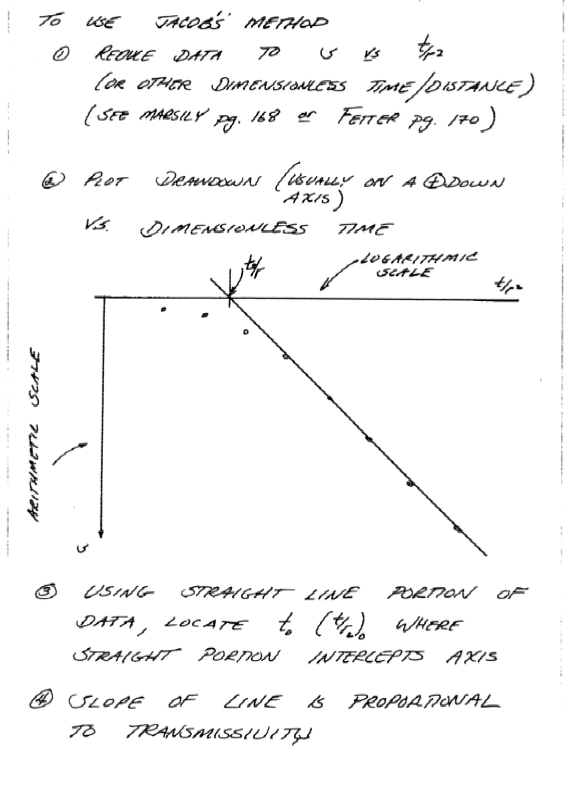 TO USE JACOB'S METHOD
① REDUCE DATA TO s vs t/r2
(OR OTHER DIMENSIONLESS TIME/DISTANCE)
(SEE MARSILY pg. 168 or FETTER pg. 170)
② PLOT DRAWDOWN (USUALLY ON A ⊕ DOWN
AXIS)
VS. DIMENSIONLESS TIME
LOGARITHMIC
SCALE
t/r2
ARITHMETIC SCALE
s
③ USING STRAIGHT LINE PORTION OF
DATA, LOCATE t₀ (t/r2)₀ WHERE
STRAIGHT PORTION INTERCEPTS AXIS
④ SLOPE OF LINE IS PROPORTIONAL
TO TRANSMISSIVITY